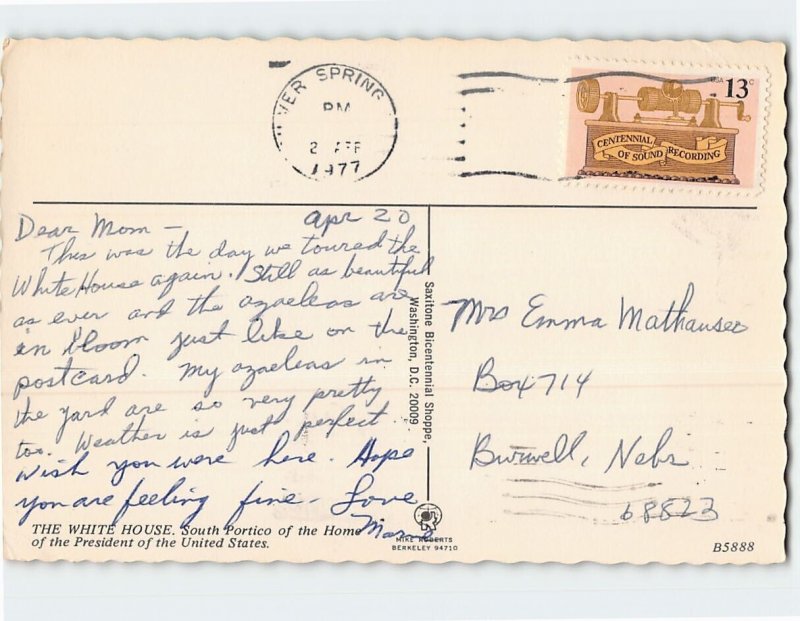 SILVER SPRING
PM
2 APR
1977
USA 13c
CENTENNIAL
OF SOUND RECORDING
Apr 20
Dear Mom -
This was the day we toured the
White House again. Still as beautiful
as ever and the azaeleas are
in bloom just like on the
postcard. My azaeleas in
the yard are so very pretty
too. Weather is just perfect.
Wish you were here. Hope
you are feeling fine - Love
THE WHITE HOUSE. South Portico of the Home
of the President of the United States.
Saxitone Bicentennial Shoppe,
Washington, D.C. 20009
MIKE ROBERTS
BERKELEY 94710
Mrs Emma Mathauser
Box 714
Burwell, Nebr
68823
B5888